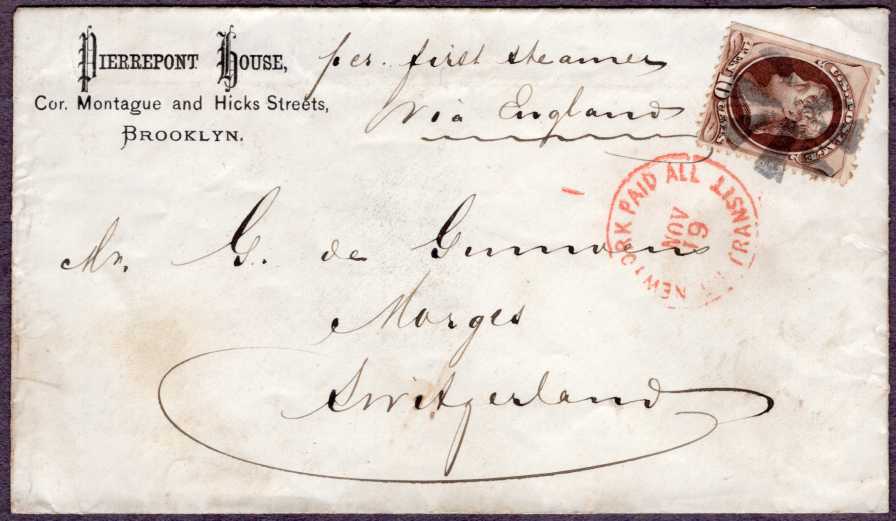 PIERREPONT HOUSE,
Cor. Montague and Hicks Streets,
BROOKLYN.
per. first steamer
via England
NEW YORK PAID ALL TRANSIT
NOV
19
Mr. G. de
Morges
Switzerland